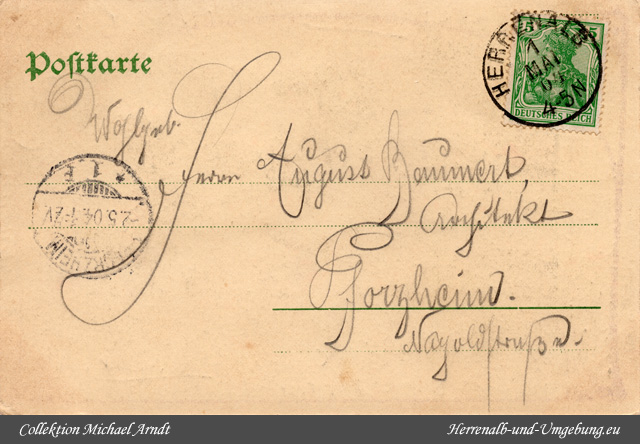 Postkarte
HERRENALB
1
MAI
04
4-5N
5
5
DEUTSCHES REICH
Wohlgeb.
Herrn August Baumert,
Architekt
Pforzheim.
Nagoldstraße
PFORZHEIM
2.5.04.
1-2V
* 1 *
Collektion Michael Arndt
Herrenalb-und-Umgebung.eu